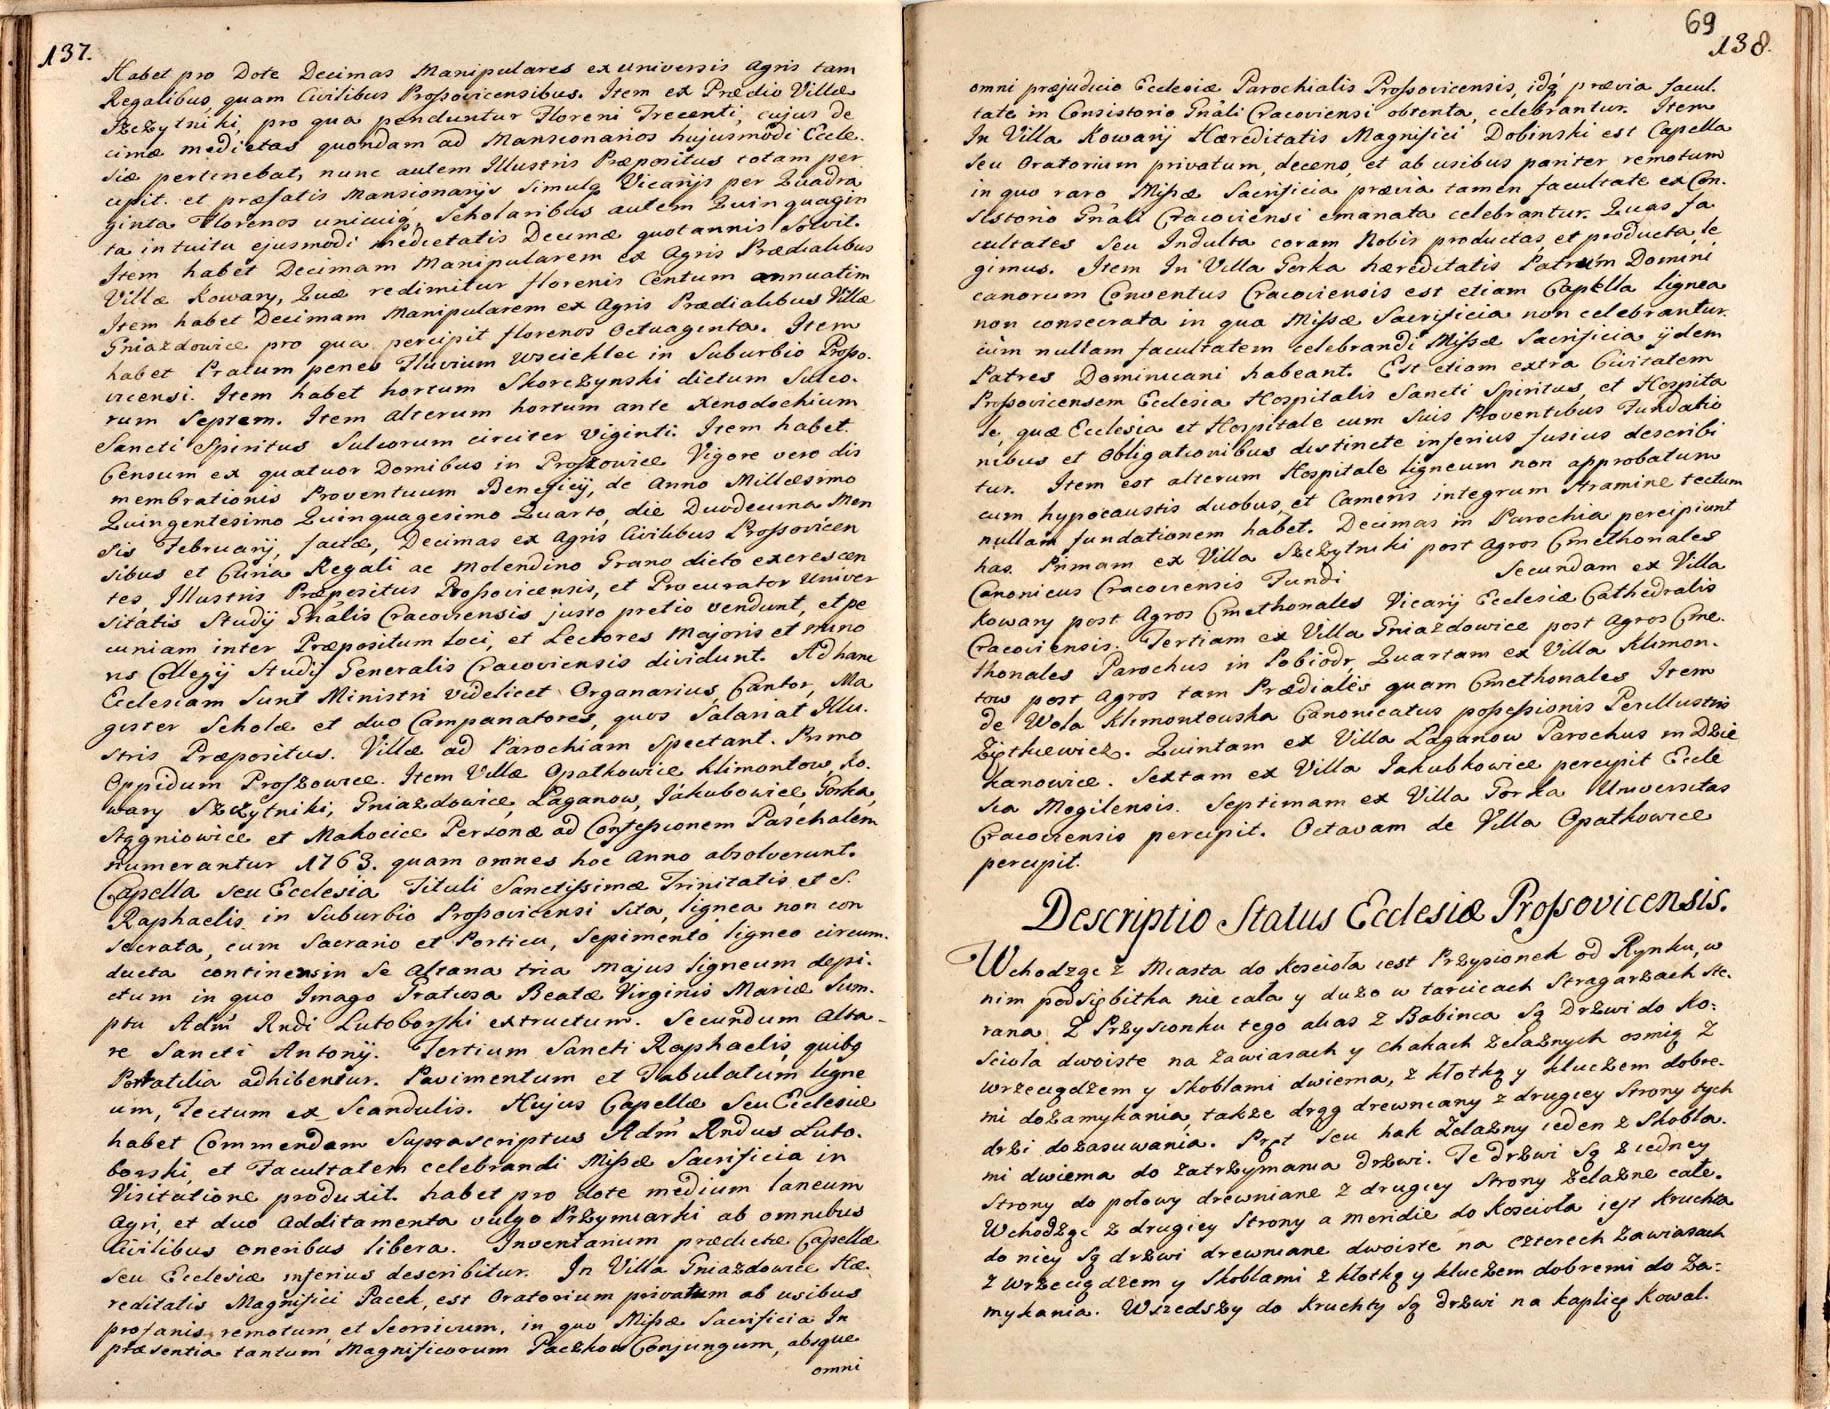 137.
Habet pro Dote Decimas Manipulares ex universis Agris tam
Regalibus, quam Civilibus Prossovicensibus. Item ex Prædio Villæ
Szczytniki, pro qua penduntur Floreni Trecenti, cujus de
cimæ medietas quondam ad Mansionarios hujusmodi Eccle.
siæ pertinebat, nunc autem Illustris Præpositus totam per
cipit. et præfatis Mansionarijs simulq Vicarijs per Quadra
ginta Florenos unicuiq, Scholaribus autem Quinquagin
ta intuitu ejusmodi medietatis Decimæ quotannis solvit.
Item habet Decimam Manipularem ex Agris Prædialibus
Villæ Kowary, Quæ redimitur florenis Centum annuatim
Item habet Decimam Manipularem ex Agris Prædialibus Villæ
Gniazdowice pro qua percipit florenos Octuaginta. Item
habet Pratum penes Fluvium Wscieklec in Suburbio Prosso.
vicensi. Item habet hortum Skorczynski dictum Sulco.
rum Septem. Item alterum hortum ante Xenodochium
Sancti Spiritus Sulcorum circiter viginti. Item habet
Censum ex quatuor Domibus in Proszowice Vigore vero dis
membrationis Proventuum Beneficij, de Anno Millesimo
Quingentesimo Quinquagesimo Quarto, die Duodecima Men
sis Februarij, factæ, Decimas ex Agris Civilibus Prossovicen
sibus et Curia Regali ac Molendino Grano dicto excrescen
tes, Illustris Præpositus Prossovicensis, et Procurator Univer
sitatis Studij Gnâlis Cracoviensis justo pretio vendunt, et pe
cuniam inter Præpositum loci, et Lectores Majoris et mino
ris Collegij Studij Generalis Cracoviensis dividunt. Ad hanc
Ecclesiam sunt Ministri videlicet Organarius, Cantor, Ma
gister Scholæ et duo Campanatores, quos Salariat Illu.
stris Præpositus. Villæ ad Parochiam Spectant. Primo
Oppidum Proszowice. Item Villæ Opatkowice Klimontow, Ko.
wary Szczytniki, Gniazdowice, Łaganow, Jakubowice, Gorka,
Stęgniowice et Makocice Personæ ad Confessionem Paschalem
numerantur 1763. quam omnes hoc Anno absolverunt.
Capella seu Ecclesia Tituli Sanctissimæ Trinitatis et S.
Raphaelis in Suburbio Prossovicensi sita, lignea non con
secrata, cum Sacrario et Porticu, Sepimento ligneo circum.
ducta continens in se Altaria tria Majus ligneum depi.
ctum in quo Imago Gratiosa Beatæ Virginis Mariæ Sum.
ptu Adm Rndi Lutoborski extructum. Secundum Alta-
re Sancti Antonij. Tertium Sancti Raphaelis, quibq
Portatilia adhibentur. Pavimentum et Tabulatum ligne
um, Tectum ex Scandulis. Hujus Capellæ seu Ecclesiæ
habet Commendam Suprascriptus Adm Rndus Luto.
borski, et Facultatem celebrandi Missæ Sacrificia in
Visitatione produxit. habet pro dote medium laneum
Agri, et duo additamenta vulgo Przymiarki ab omnibus
Civilibus oneribus libera. Inventarium prædictæ Capellæ
seu Ecclesiæ inferius describitur. In Villa Gniazdowice Hæ.
reditatis Magnifici Pacek, est Oratorium privatum ab usibus
profanis remotum, et Seorsivum, in quo Missæ Sacrificia In
præsentia tantum Magnificorum Paczkow Conjungum, absque
omni
69
138.
omni præjudicio Ecclesiæ Parochialis Prossovicensis, idq prævia facul.
tate in Consistorio Gnâli Cracoviensi obtenta, celebrantur. Item
In Villa Kowary Hæreditatis Magnifici Dobinski est Capella
seu Oratorium privatum, decens, et ab usibus pariter remotum
in quo raro Missæ Sacrificia prævia tamen facultate ex Con.
sistorio Gnâli Cracoviensi emanata celebrantur. Quas fa
cultates seu Indulta coram Nobis productas, et producta, le
gimus. Item In Villa Gorka hæreditatis Patrum Domini
canorum Conventus Cracoviensis est etiam Capella lignea
non consecrata in qua Missæ Sacrificia non celebrantur.
cum nullam facultatem celebrandi Missæ Sacrificia ijdem
Patres Dominicani habeant. Est etiam extra Civitatem
Prossovicensem Ecclesia Hospitalis Sancti Spiritus, et Hospita
le, quæ Ecclesia et Hospitale cum Suis Proventibus Fundatio
nibus et Obligationibus distincte inferius fusius describi
tur. Item est alterum Hospitale ligneum non approbatum
cum hypocaustis duobus, et Cameris integrum Stramine tectum
nullam fundationem habet. Decimas in Parochia percipiunt
has. Primam ex Villa Szczytniki post Agros Cmethonales
Canonicus Cracoviensis Fundi Secundam ex Villa
Kowary post Agros Cmethonales Vicarij Ecclesiæ Cathedralis
Cracoviensis. Tertiam ex Villa Gniazdowice post Agros Cme.
thonales Parochus in Pobiodr, Quartam ex Villa Klimon.
tow post Agros tam Prædiales quam Cmethonales Item
de Wola Klimontouska Canonicatus possessionis Perillustris
Ziętkiewicz. Quintam ex Villa Łaganow Parochus in Dzie
kanowice. Sextam ex Villa Jakubkowice percipit Eccle
sia Mogilensis. Septimam ex Villa Gorka Universitas
Cracoviensis percipit. Octavam de Villa Opatkowice
percipit.
Descriptio Status Ecclesiæ Prossovicensis.
Wchodząc z Miasta do Koscioła iest Przysionek od Rynku, w
nim podsiębitka nie cała y dużo w tarcicach Stragarzach ste.
rana. Z Przysionku tego alias z Babinca są Drzwi do Ko:
scioła dwoiste na zawiasach y chakach żelaznych osmią z
wrzeciądzem y skoblami dwiema, z kłotką y kluczem dobre.
mi do zamykania, także drąg drewniany z drugiey strony tych
drzwi do zasuwania. Pręt seu hak Zelazny ieden z Skobla.
mi dwiema do zatrzymania drzwi. Te drzwi są z iedney
strony do połowy drewniane z drugiey strony Zelazne całe.
Wchodząc z drugiey strony a meridie do Koscioła iest Kruchta
do niey są drzwi drewniane dwoiste na czterech zawiasach
z wrzeciądzem y skoblami z kłotką y kluczem dobremi do Za:
mykania. Wszedszy do Kruchty są drzwi na kaplicę Kowal.